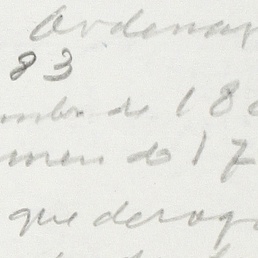 Ordenan
83
mbre de 18
men de 17
que deroga